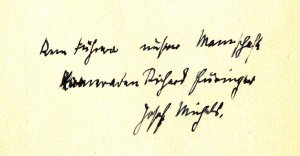 Dem Führer unserer Mannschaft
Kameraden Richard Euringer
Joseph Michels.